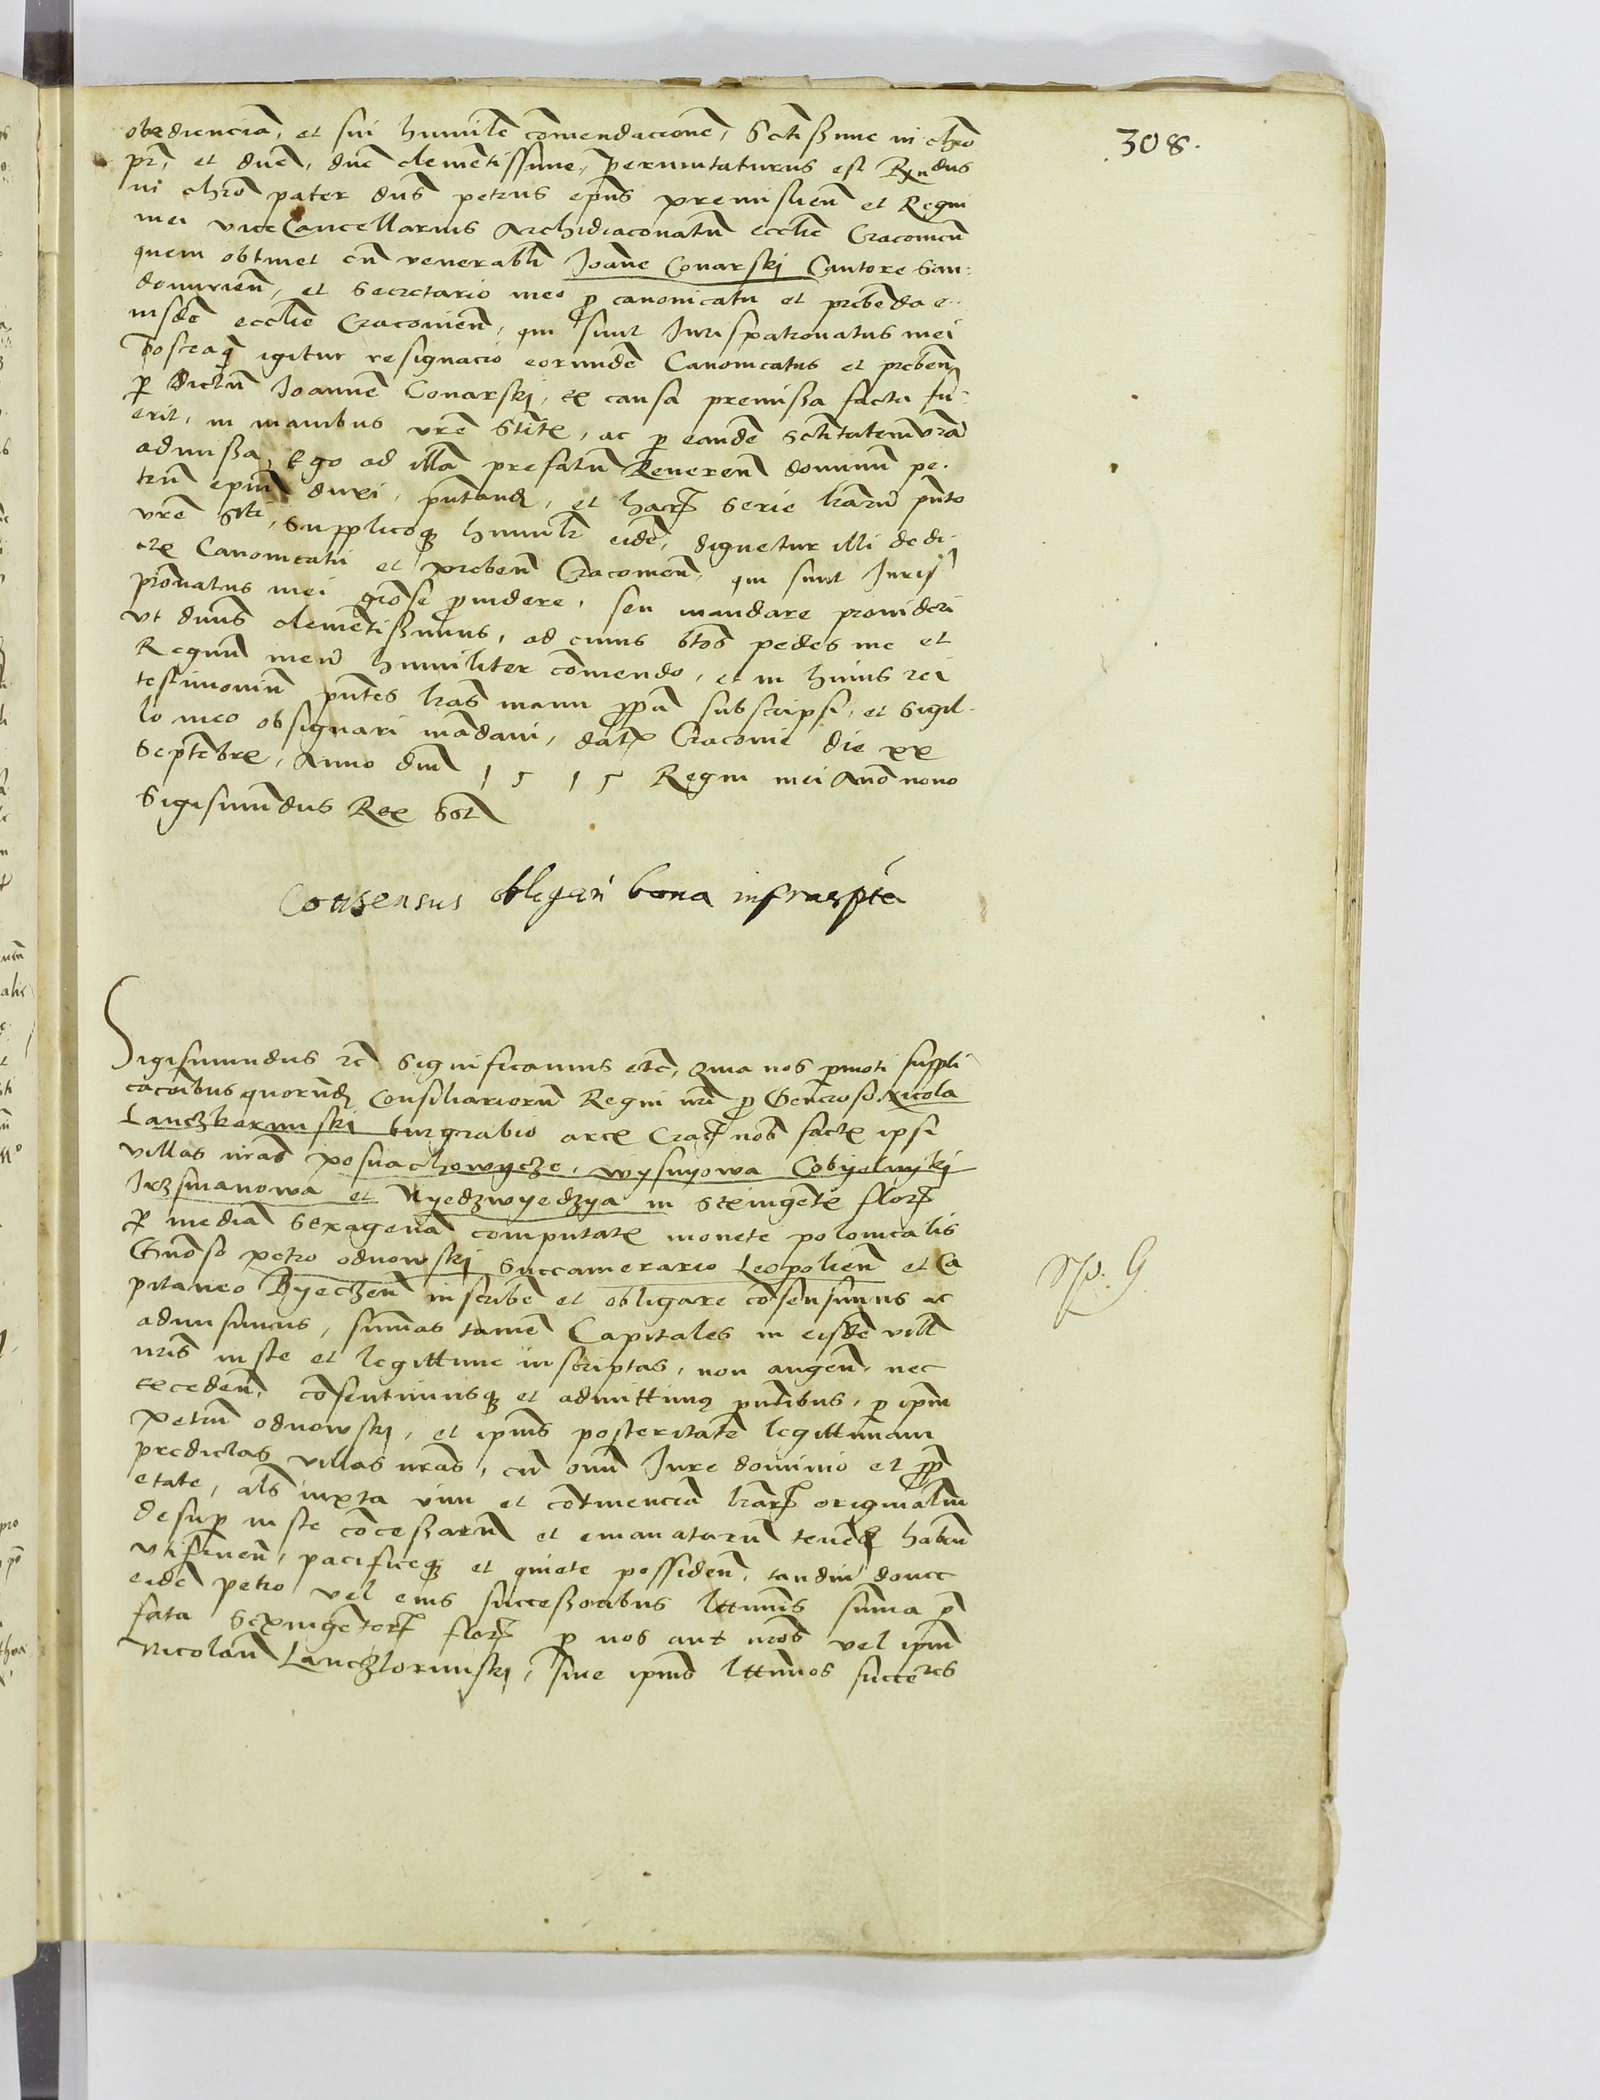 308.
obediencia, et sui humile comendacione, Sctissime in chro
pr, et dne, dne clementissime, Permutaturus est Rndus
in chro pater dns petrus epus premislien et Regni
mei viceCancellarius Archidiaconatu ecclie Cracovien
quem obtinet cu venerabli Joanne Conarskj Cantore San-
domirien, et Secretario meo p canonicatu et prebenda e-
iusde ecclie Cracovien, qui sunt Jurispatronatus mei
Posteaq igitur resignacio eorunde Canonicatus et preben
p dictu Joannem Conarskj, ex causa premissa facta fu-
erit, in manibus vre Stitis, ac p eande Sctitatem vra
admissa, Ego ad illa prefatu Reveren dominu pe-
tru epum duxi, pntand, et har serie lraru pnto
vre Sti, Supplicoq humilr eide, dignetur illi de di-
ctis Canonicatu et preben Cracovien, qui sunt Juris
pronatus mei grose pvidere, seu mandare provideri
vt dnus clementissimus, ad cuius btos pedes me et
Regnu meu humiliter comendo, et in huius rei
testimoniu pntes lras manu ppa subscripsi, et Sigil-
lo meo obsignari madavi, dat Cracovie die xx
Septebris, Anno dni 1515 Regni mei Ano nono
Sigismundus Rex sst
Consensus obligari bona infraspta
Sigismundus rc Significamus etc, Quia nos pmoti suppli
cacoibus quorund Consiliarioru Regni nri p Generoso Nicola
Lanczkorunskj burgrabio arcis Crac nob factis ipsi
villas nras Posnachowycze, wysnyowa Cobyelnykj
Jrzmanowa et Nyedzwyedzya in Sexingetis flor
p media Sexagena computatis monete polonicalis
Gnoso petro odnowskj Succamerario Leopolien et Ca
pitaneo Byeczen inscribe et obligare consensimus ac
admisimus, summas tame Capitales in eisde vill
nris iuste et legittime inscriptas, non augen, nec
exceden, consentimusq et admittimus pntibus, p ipm
Petru odnowskj, et ipius posteritate legittimam
predictas villas nras, cu omni Jure dominio et pp
etate, als iuxta vim et contine­ncia lrar originaliu
desup iuste concessaru et emanataru tened haben
vtifruen, pacificeq et quiete possiden, tandiu donec
eide petro vel eius successoribus lttimis suma p
fata Sexingetor flor p nos aut nros vel ipm
Nicolau Lanczkorunskj, sive ipius lttimos succeres